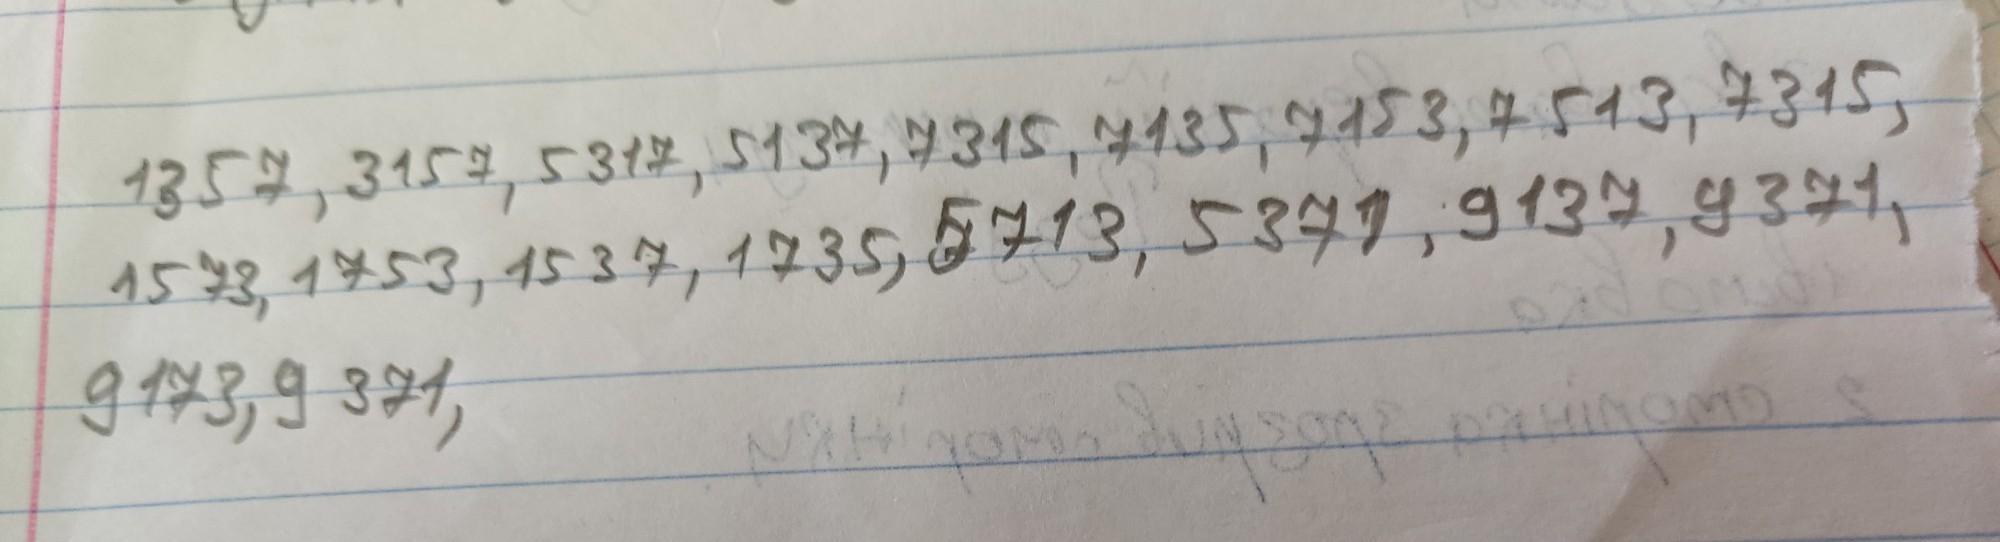 1357, 3157, 5317, 5137, 7315, 7135, 7153, 7513, 7315,
1573, 1753, 1537, 1735, 5713, 5371, 9137, 9371,
9173, 9371,